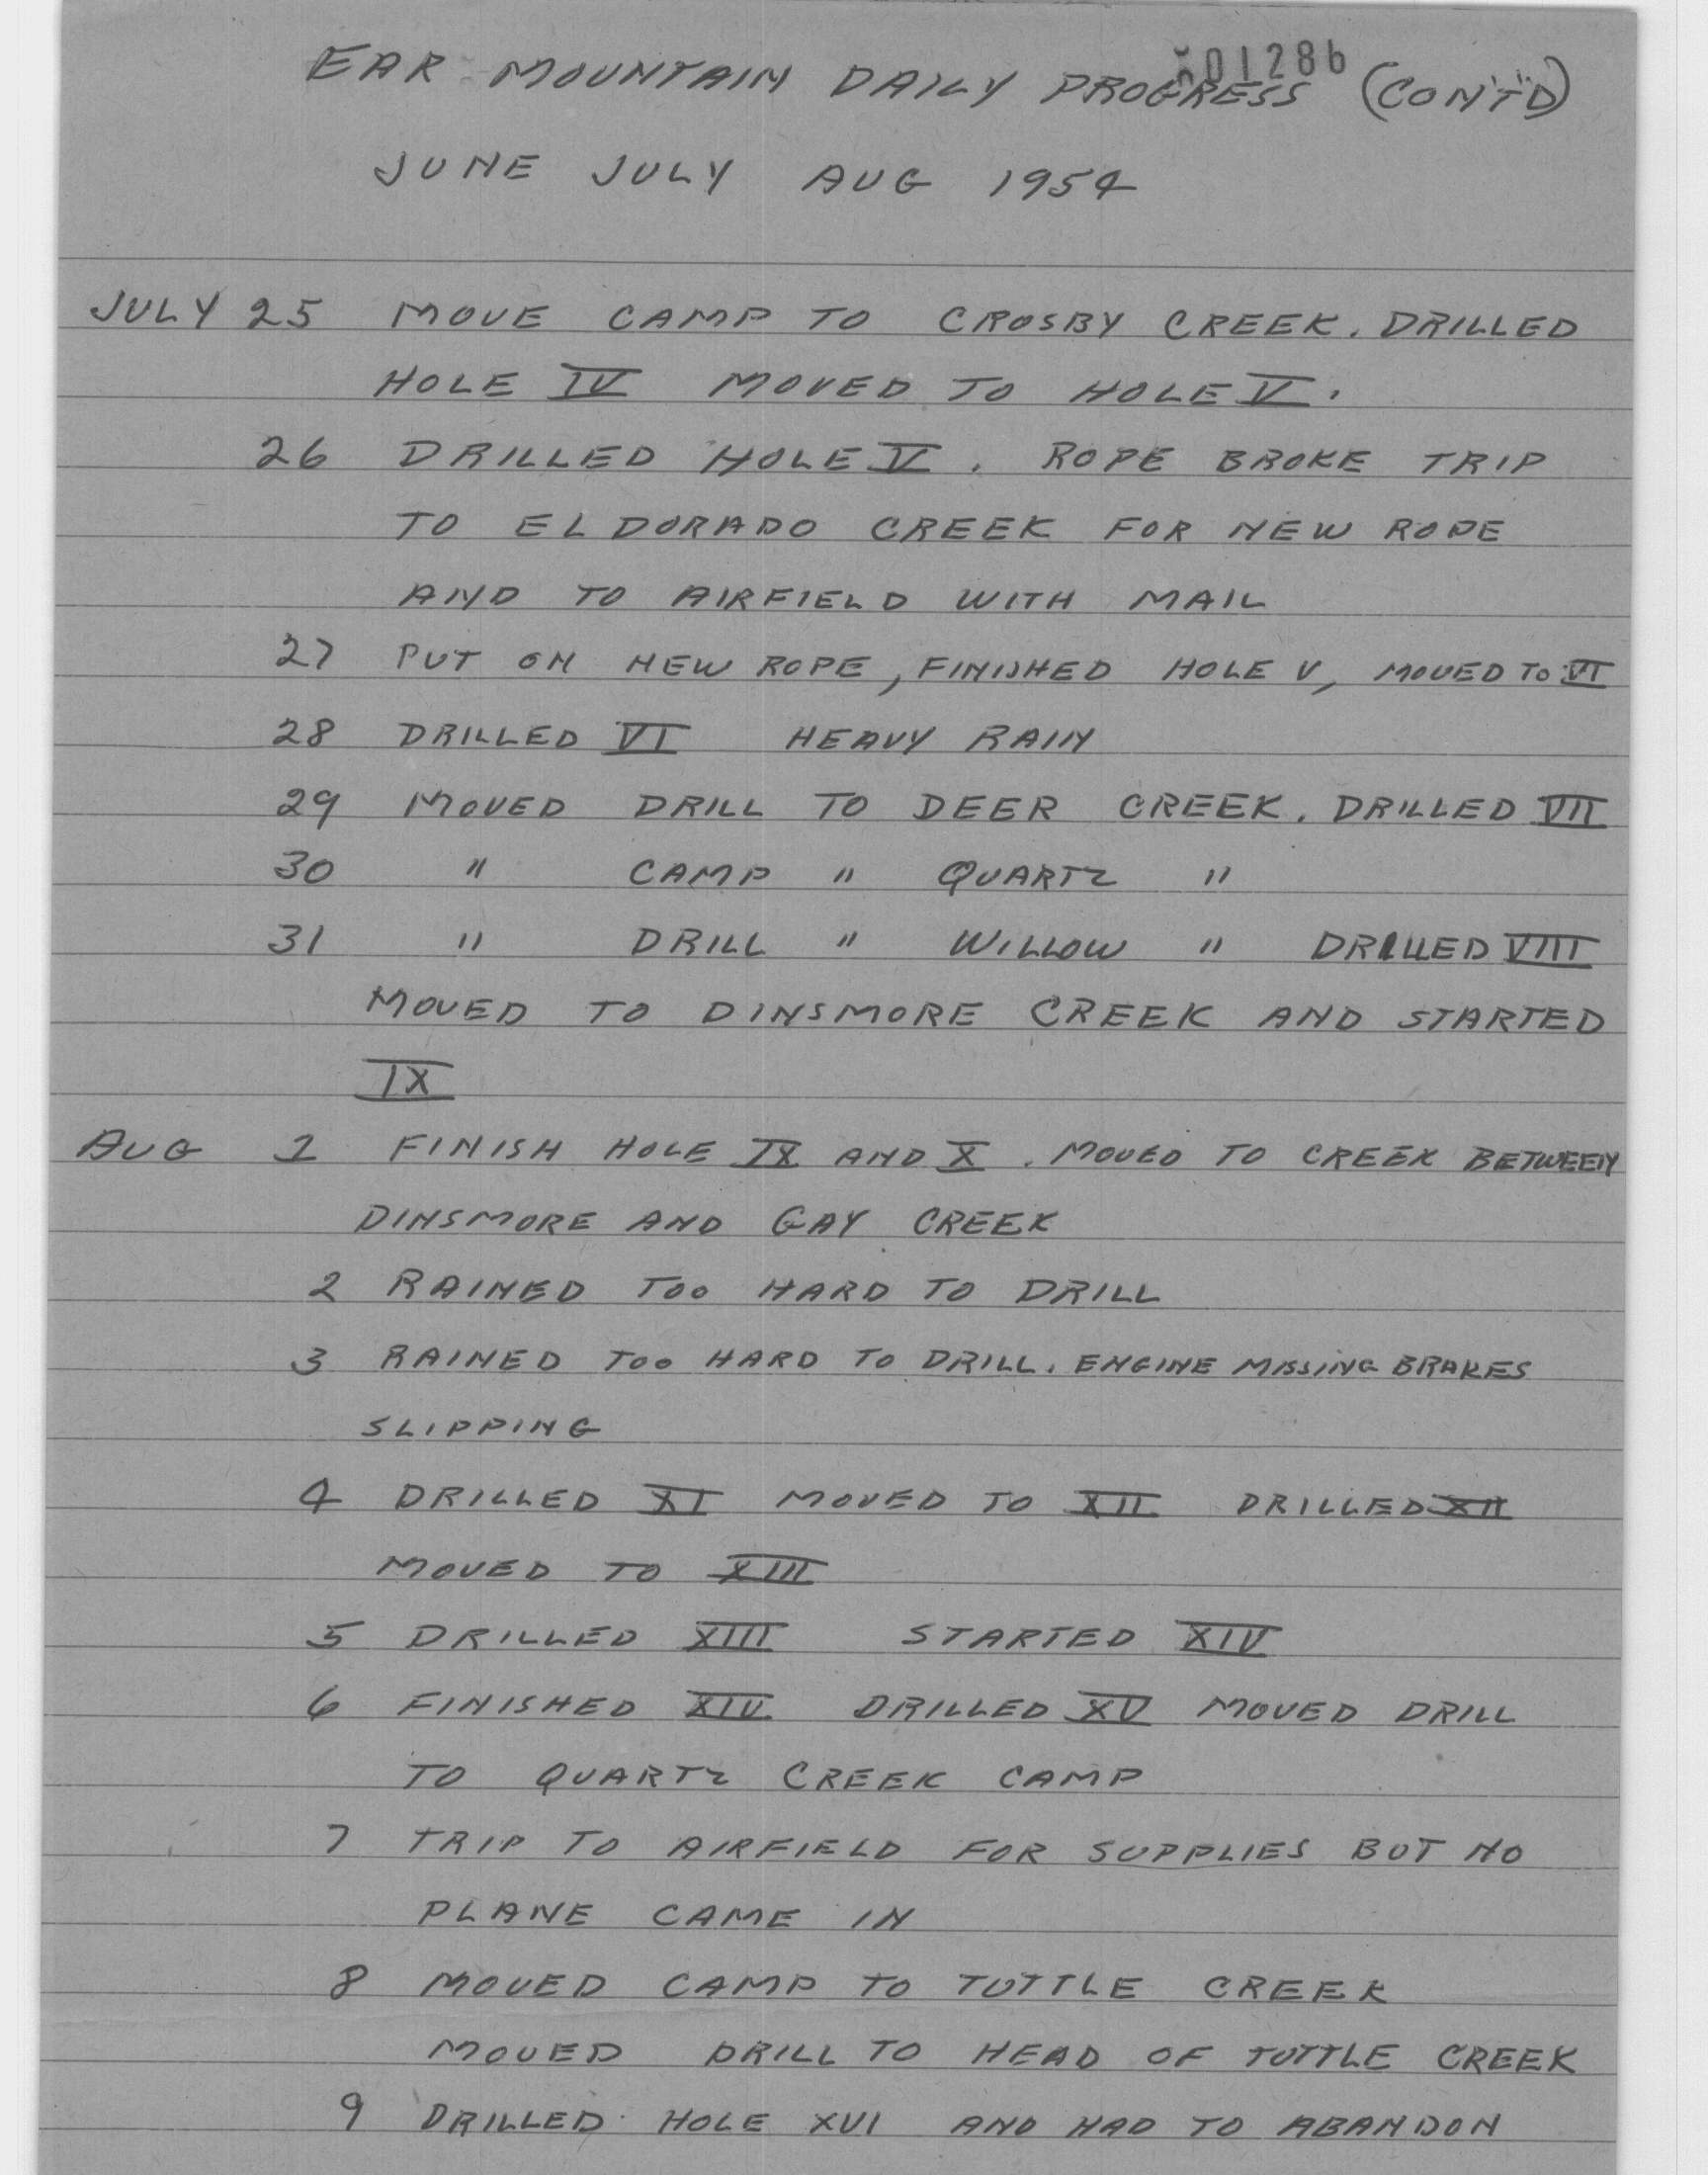 501286
EAR MOUNTAIN DAILY PROGRESS (CONT'D)
JUNE JULY AUG 1954
JULY 25 MOVE CAMP TO CROSBY CREEK. DRILLED
HOLE IV MOVED TO HOLE V.
26 DRILLED HOLE V. ROPE BROKE TRIP
TO ELDORADO CREEK FOR NEW ROPE
AND TO AIRFIELD WITH MAIL
27 PUT ON NEW ROPE, FINISHED HOLE V, MOVED TO VI
28 DRILLED VI HEAVY RAIN
29 MOVED DRILL TO DEER CREEK. DRILLED VII
30 " CAMP " QUARTZ "
31 " DRILL " WILLOW " DRILLED VIII
MOVED TO DINSMORE CREEK AND STARTED
IX
AUG 1 FINISH HOLE IX AND X. MOVED TO CREEK BETWEEN
DINSMORE AND GAY CREEK
2 RAINED TOO HARD TO DRILL
3 RAINED TOO HARD TO DRILL. ENGINE MISSING BRAKES
SLIPPING
4 DRILLED XI MOVED TO XII DRILLED XII
MOVED TO XIII
5 DRILLED XIII STARTED XIV
6 FINISHED XIV DRILLED XV MOVED DRILL
TO QUARTZ CREEK CAMP
7 TRIP TO AIRFIELD FOR SUPPLIES BUT NO
PLANE CAME IN
8 MOVED CAMP TO TUTTLE CREEK
MOVED DRILL TO HEAD OF TUTTLE CREEK
9 DRILLED HOLE XVI AND HAD TO ABANDON